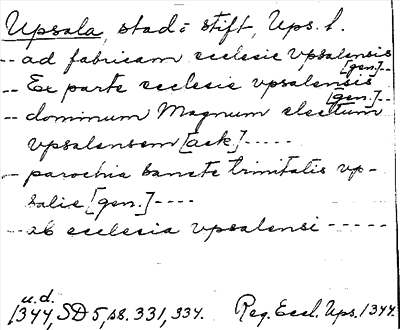 Upsala, stad o stift, Ups. l.
-- ad fabricam ecclesie vpsalensis
[gen.] --
-- Ex parte ecclesie vpsalensis
[gen.] --
-- dominum Magnum electum
vpsalensem [ack.] -----
-- parochia sancte trinitatis vp-
salie [gen.] ----
-- ab ecclesia vpsalensi -----
u.d.
1344, SD 5, ss. 331, 334. Reg. Eccl. Ups. 1344.